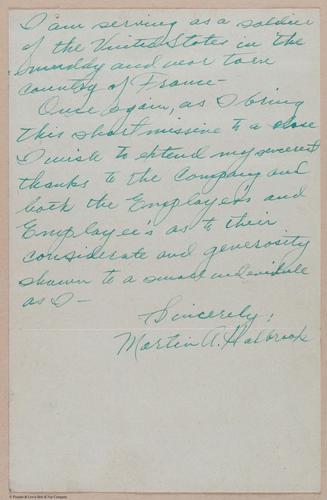 I am serving as a soldier
of the United States in the
muddy and war torn
country of France -
Once again, as I bring
this short missive to a close
I wish to extend my sincerest
thanks to the Company and
both the Employer's and
Employee's as to their
considerate and generosity
shown to a small individule
as I -
Sincerely;
Martin A. Halbrook